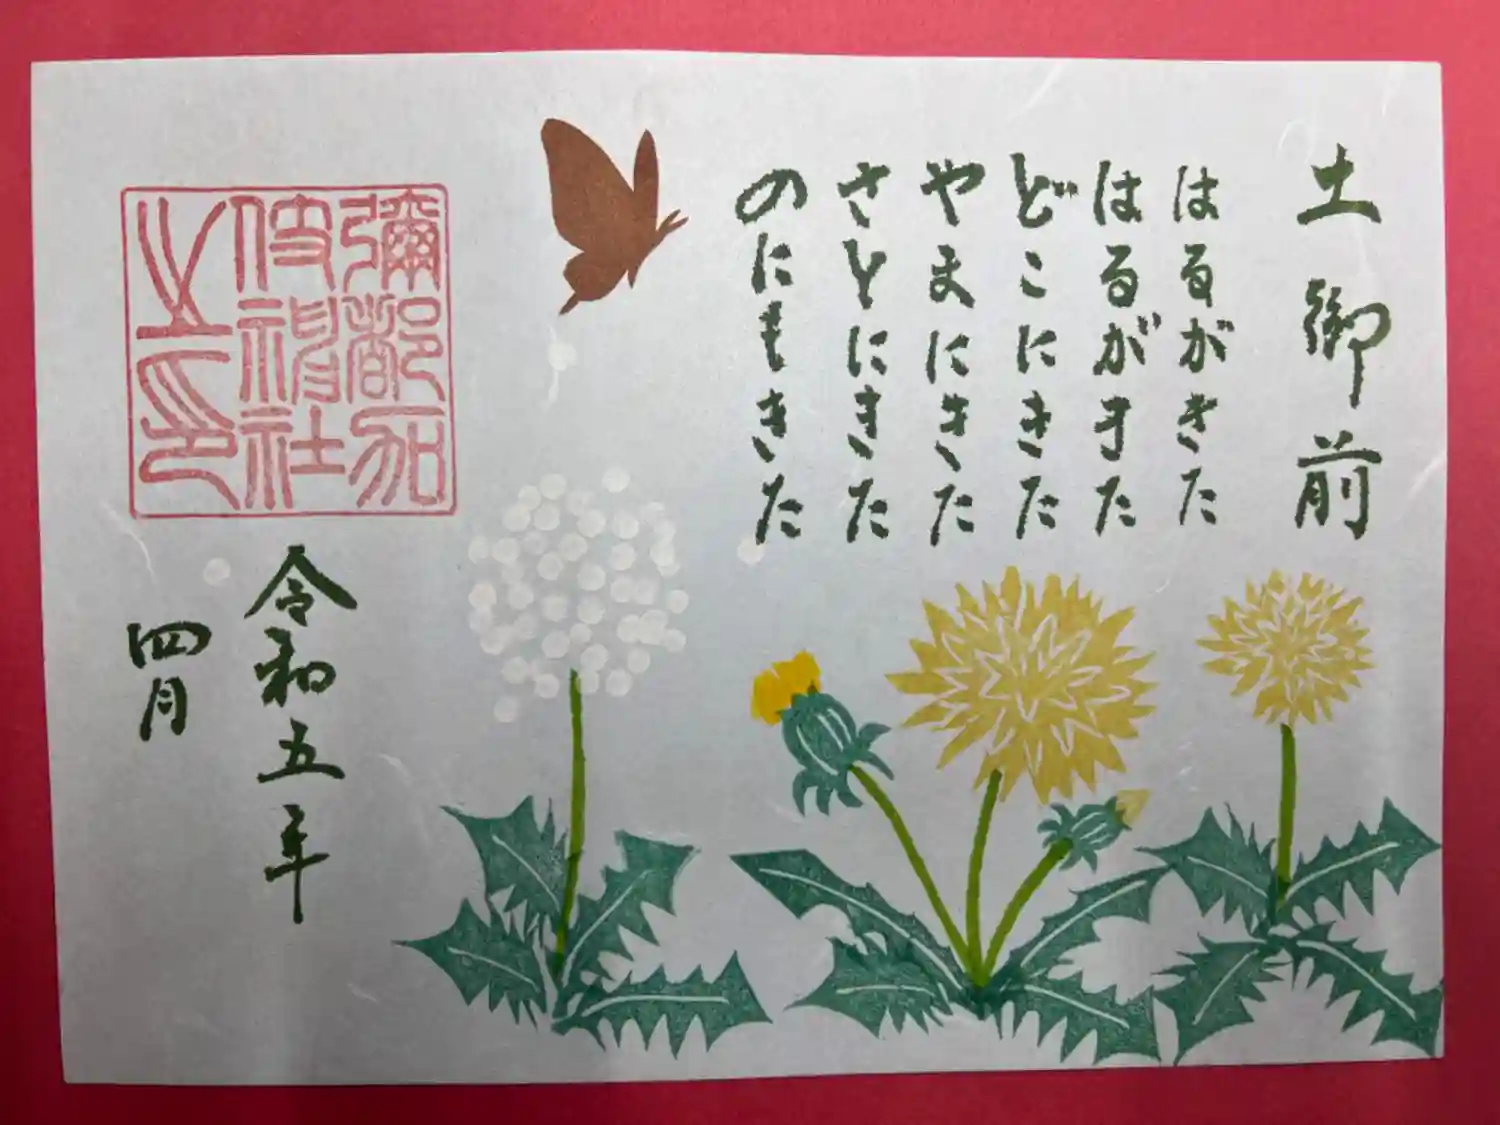 土御前
はるがきた
はるがきた
どこにきた
やまにきた
さとにきた
のにもきた
彌都加
伎神社
之印
令和五年
四月